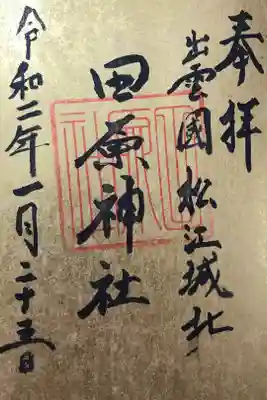 奉拝
出雲國松江城北
田原神社
令和二年一月二十三日